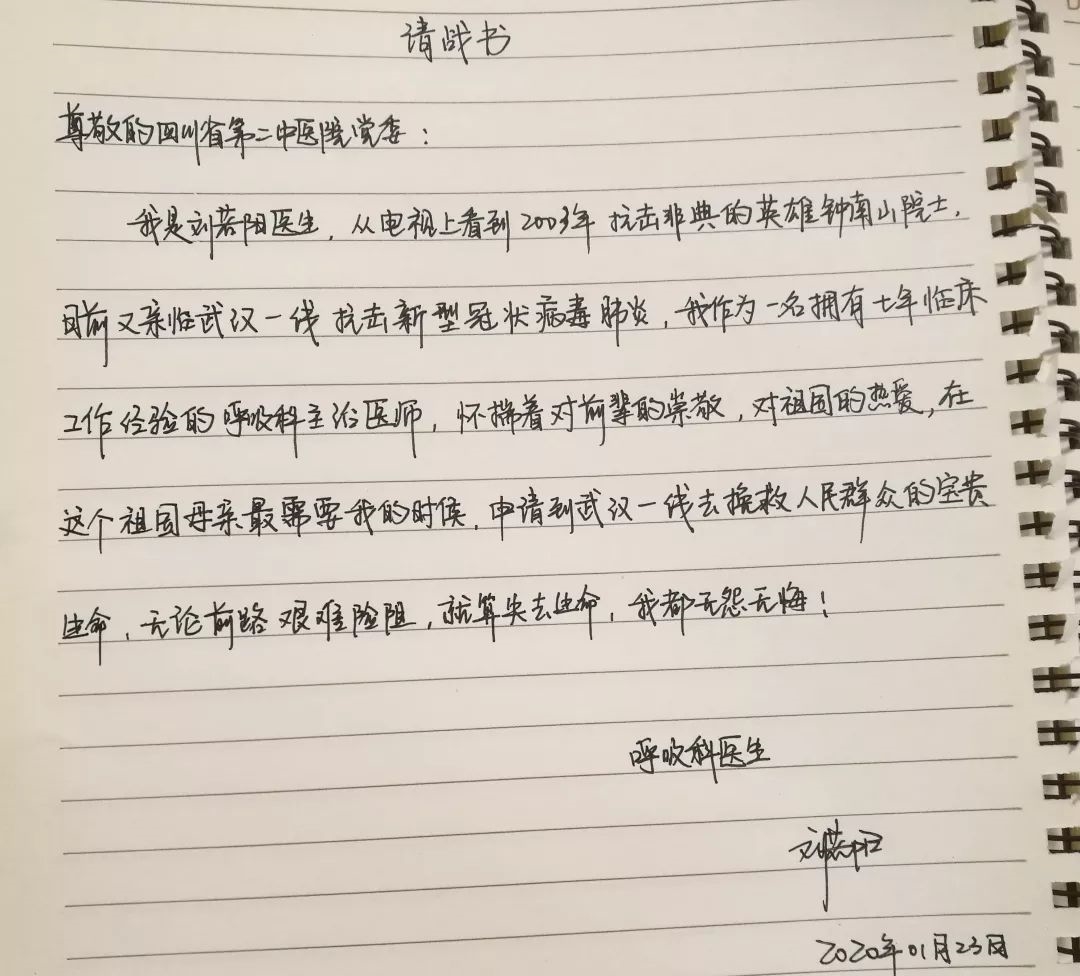 请战书
尊敬的四川省第二中医院党委：
我是刘若阳医生，从电视上看到2003年抗击非典的英雄钟南山院士，
目前又亲临武汉一线抗击新型冠状病毒肺炎，我作为一名拥有七年临床
工作经验的呼吸科主治医师，怀揣着对前辈的崇敬，对祖国的热爱，在
这个祖国母亲最需要我的时候，申请到武汉一线去挽救人民群众的宝贵
生命，无论前路艰难险阻，就算失去生命，我都无怨无悔！
呼吸科医生
刘若阳
2020年01月23日